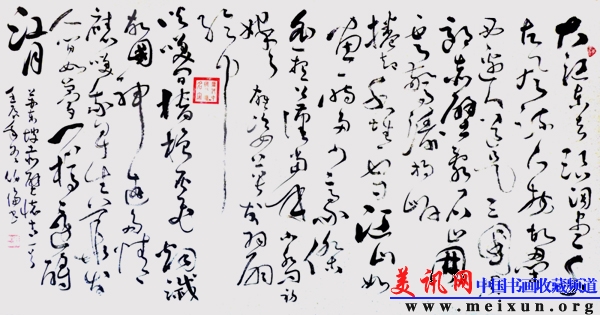 大江东去浪淘尽千
古风流人物故垒
西边人道是三国周
郎赤壁乱石崩
云惊涛拍岸
捲起千堆雪江山如
画一时多少豪杰
遥想公瑾当年小乔初
嫁了雄姿英发羽扇
纶巾
谈笑间樯橹灰飞烟灭
故国神游多情
应笑我早生华发
人间如梦一樽还酹
江月
苏东坡赤壁怀古一首
美讯网
中国书画收藏频道
www.meixun.org